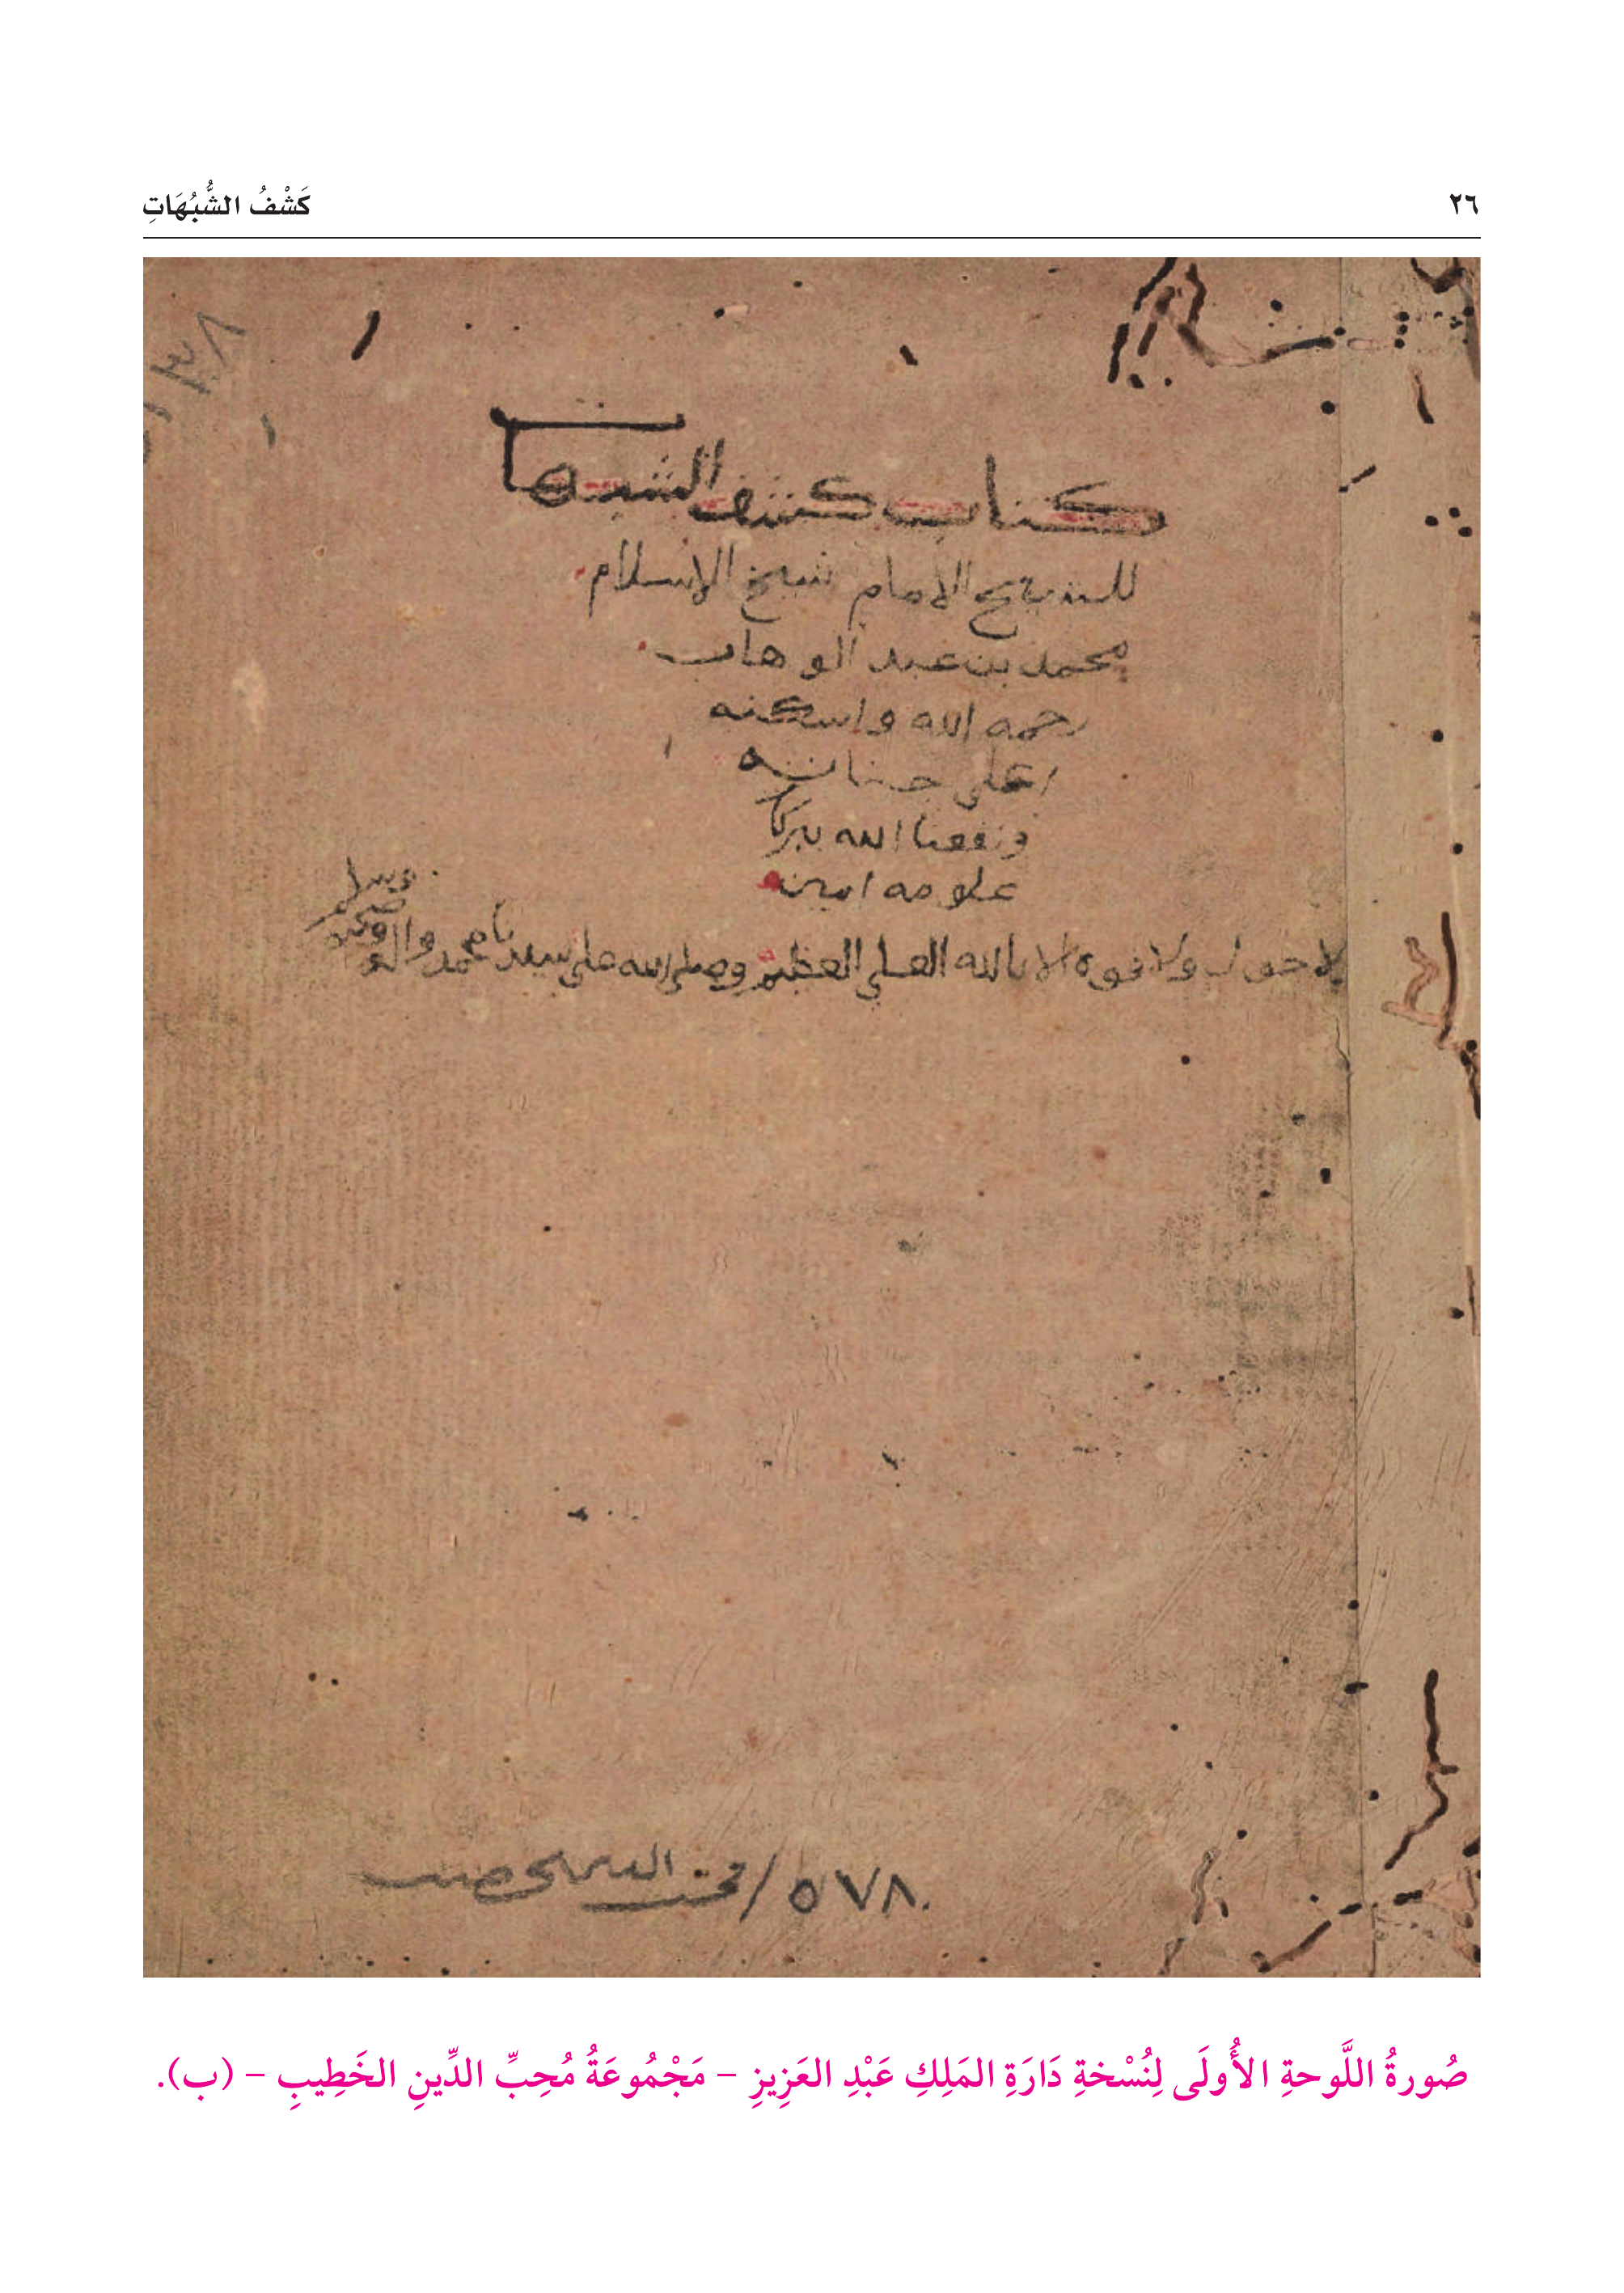 ٢٦
كَشْفُ الشُّبُهَاتِ
كتاب كشف الشبهات
للشيخ الامام شيخ الاسلام
محمد بن عبد الوهاب
رحمه الله واسكنه
اعلى جناته
ونفعنا الله ببركا
علومه امين
لا حول ولا قوه الا بالله العلي العظيم وصلى الله على سيدنا محمد واله وصحبه وسلم
٥٧٨ / محب الدين الخطيب
صُورةُ اللَّوحةِ الأُولَى لِنُسْخةِ دَارَةِ المَلِكِ عَبْدِ العَزِيزِ – مَجْمُوعَةُ مُحِبِّ الدِّينِ الخَطِيبِ – (ب).